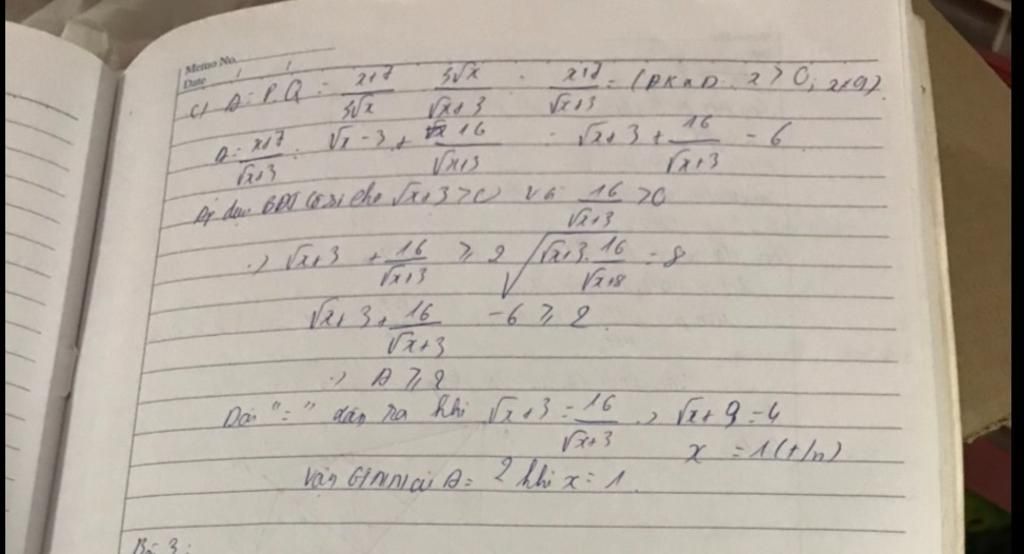 Memo No.
Date / /
c) A = P.Q = \frac{x+7}{3\sqrt{x}} . \frac{3\sqrt{x}}{\sqrt{x}+3} = \frac{x+7}{\sqrt{x}+3} = (ĐKXĐ: x > 0; x ≠ 9)
A = \frac{x+7}{\sqrt{x}+3} = \sqrt{x} - 3 + \frac{16}{\sqrt{x}+3} = \sqrt{x} + 3 + \frac{16}{\sqrt{x}+3} - 6
BĐT Cosi cho \sqrt{x}+3 > 0 và \frac{16}{\sqrt{x}+3} > 0
=> \sqrt{x}+3 + \frac{16}{\sqrt{x}+3} ≥ 2\sqrt{\sqrt{x}+3 . \frac{16}{\sqrt{x}+3}} = 8
\sqrt{x}+3 + \frac{16}{\sqrt{x}+3} - 6 ≥ 2
=> A ≥ 2
Dấu "=" xảy ra khi \sqrt{x}+3 = \frac{16}{\sqrt{x}+3} => \sqrt{x}+3 = 4
x = 1 (t/m)
Vậy GTNN của A = 2 khi x = 1
Bài 3: